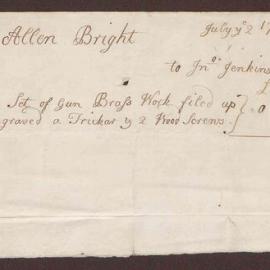 Allen Bright
July yͤ 2 1
to Jnº. Jenkins
£
Set of Gun Brass Work filed up
graved a Tricker y 2 Wood Screws. } 0